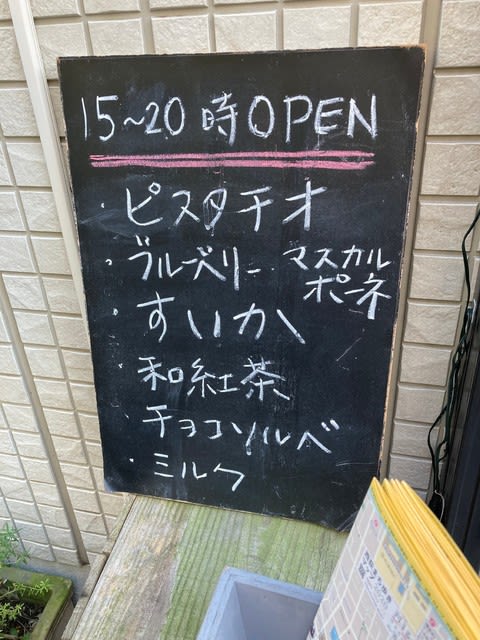 15~20時OPEN
・ピスタチオ
・ブルーベリー マスカルポーネ
すいか
和紅茶
チョコソルベ
・ミルク